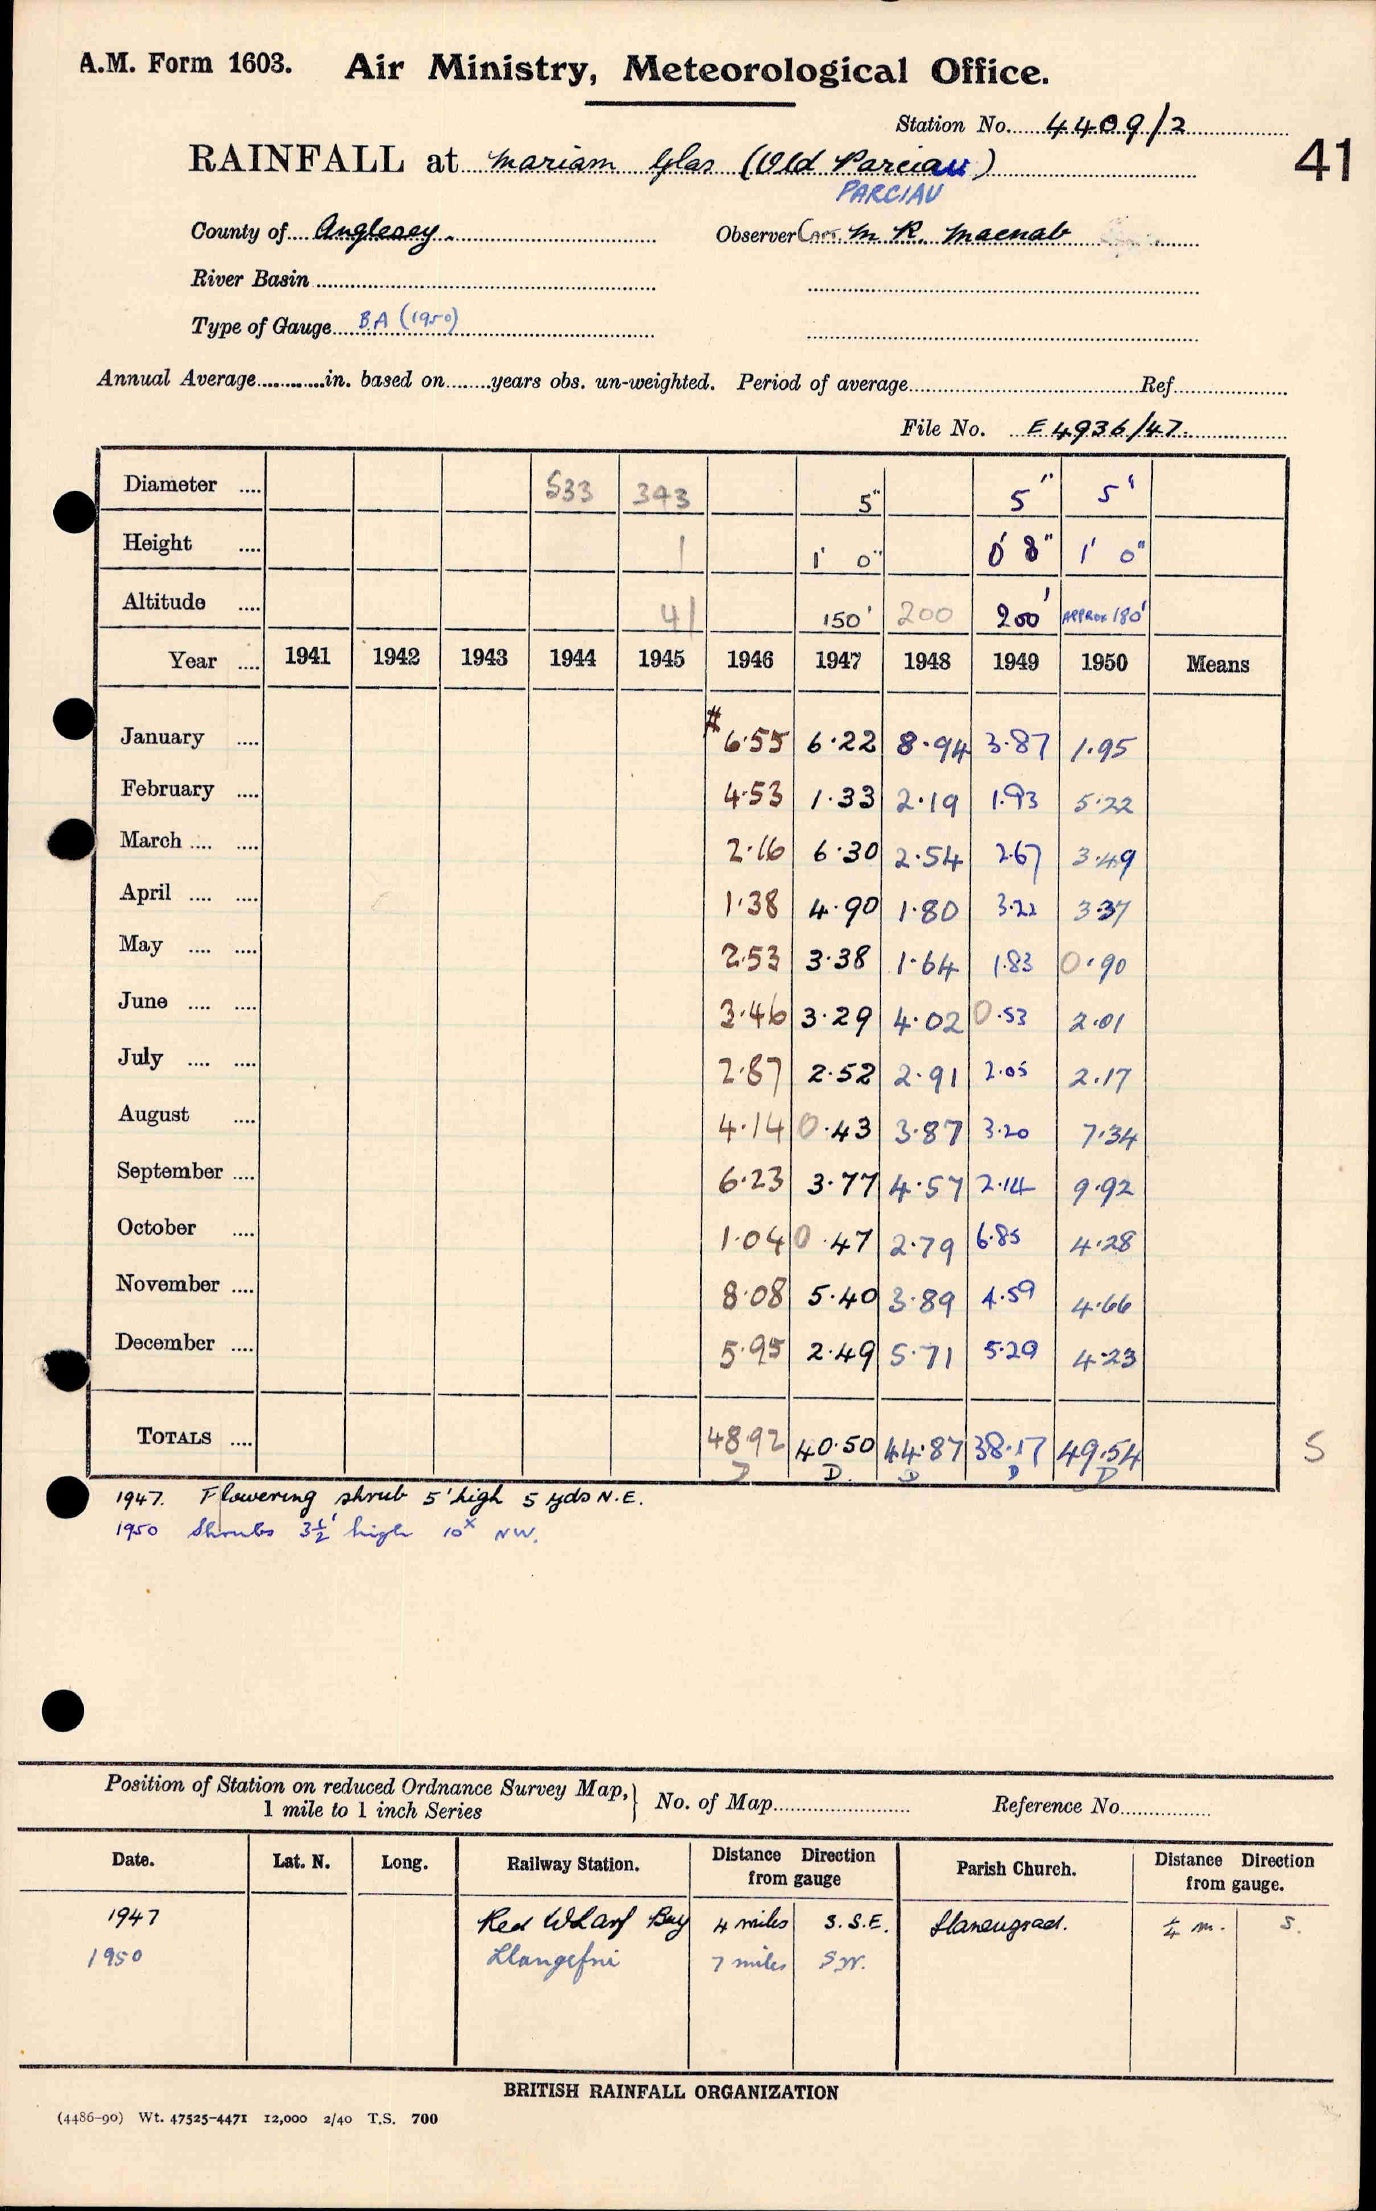 A.M. Form 1603. Air Ministry, Meteorological Office.
Station No. 4409/2
41
RAINFALL at Mariam Glas (Old Parciau)
PARCIAU
County of Anglesey. Observer Capt. M. R. Macnab
River Basin
Type of Gauge BA (1950)
Annual Average in. based on years obs. un-weighted. Period of average Ref.
File No. E4936/47.
Diameter 533 343 5" 5" 5"
Height 1 1' 0" 0' 8" 1' 0"
Altitude 41 150' 200 200' APPROX 180'
Year 1941 1942 1943 1944 1945 1946 1947 1948 1949 1950 Means
January # 6.55 6.22 8.94 3.87 1.95
February 4.53 1.33 2.19 1.93 5.22
March 2.16 6.30 2.54 2.67 3.49
April 1.38 4.90 1.80 3.22 3.37
May 2.53 3.38 1.64 1.83 0.90
June 3.46 3.29 4.02 0.53 2.01
July 2.87 2.52 2.91 2.05 2.17
August 4.14 0.43 3.87 3.20 7.34
September 6.23 3.77 4.57 2.14 9.92
October 1.04 0.47 2.79 6.85 4.28
November 8.08 5.40 3.89 4.59 4.66
December 5.95 2.49 5.71 5.29 4.23
TOTALS 48.92 40.50 44.87 38.17 49.54 S
D D. D D D
1947. Flowering shrub 5' high 5 yds N.E.
1950 Shrubs 3½' high 10x NW.
Position of Station on reduced Ordnance Survey Map,
1 mile to 1 inch Series } No. of Map Reference No.
Date. Lat. N. Long. Railway Station. Distance Direction from gauge Parish Church. Distance Direction from gauge.
1947 Red Wharf Bay 4 miles S.S.E. Llaneugrad. ¼ m. S.
1950 Llangefni 7 miles SW.
BRITISH RAINFALL ORGANIZATION
(4486-90) Wt. 47525-4471 12,000 2/40 T.S. 700